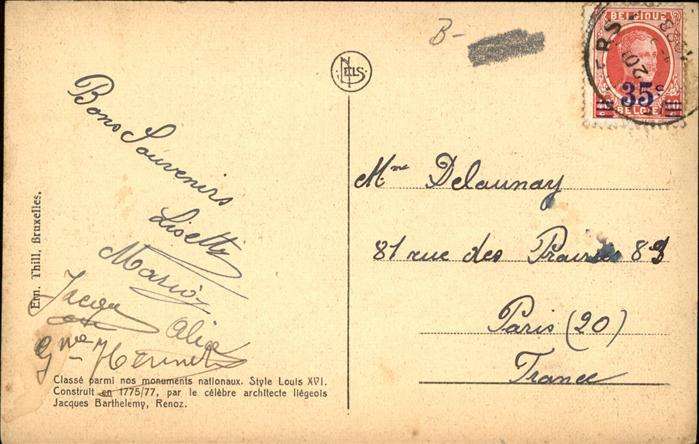 B-
NELS
BELGIQUE
35c
BELGIË
Bons Souvenirs
Lisette
Maria
Jacqu
Alice
Gne Hennet
Mme Delaunay
81 rue des Prairies 83
Paris (20)
France
Ern. Thill, Bruxelles.
Classé parmi nos monuments nationaux. Style Louis XVI.
Construit en 1775/77, par le célèbre architecte liégeois
Jacques Barthelemy, Renoz.